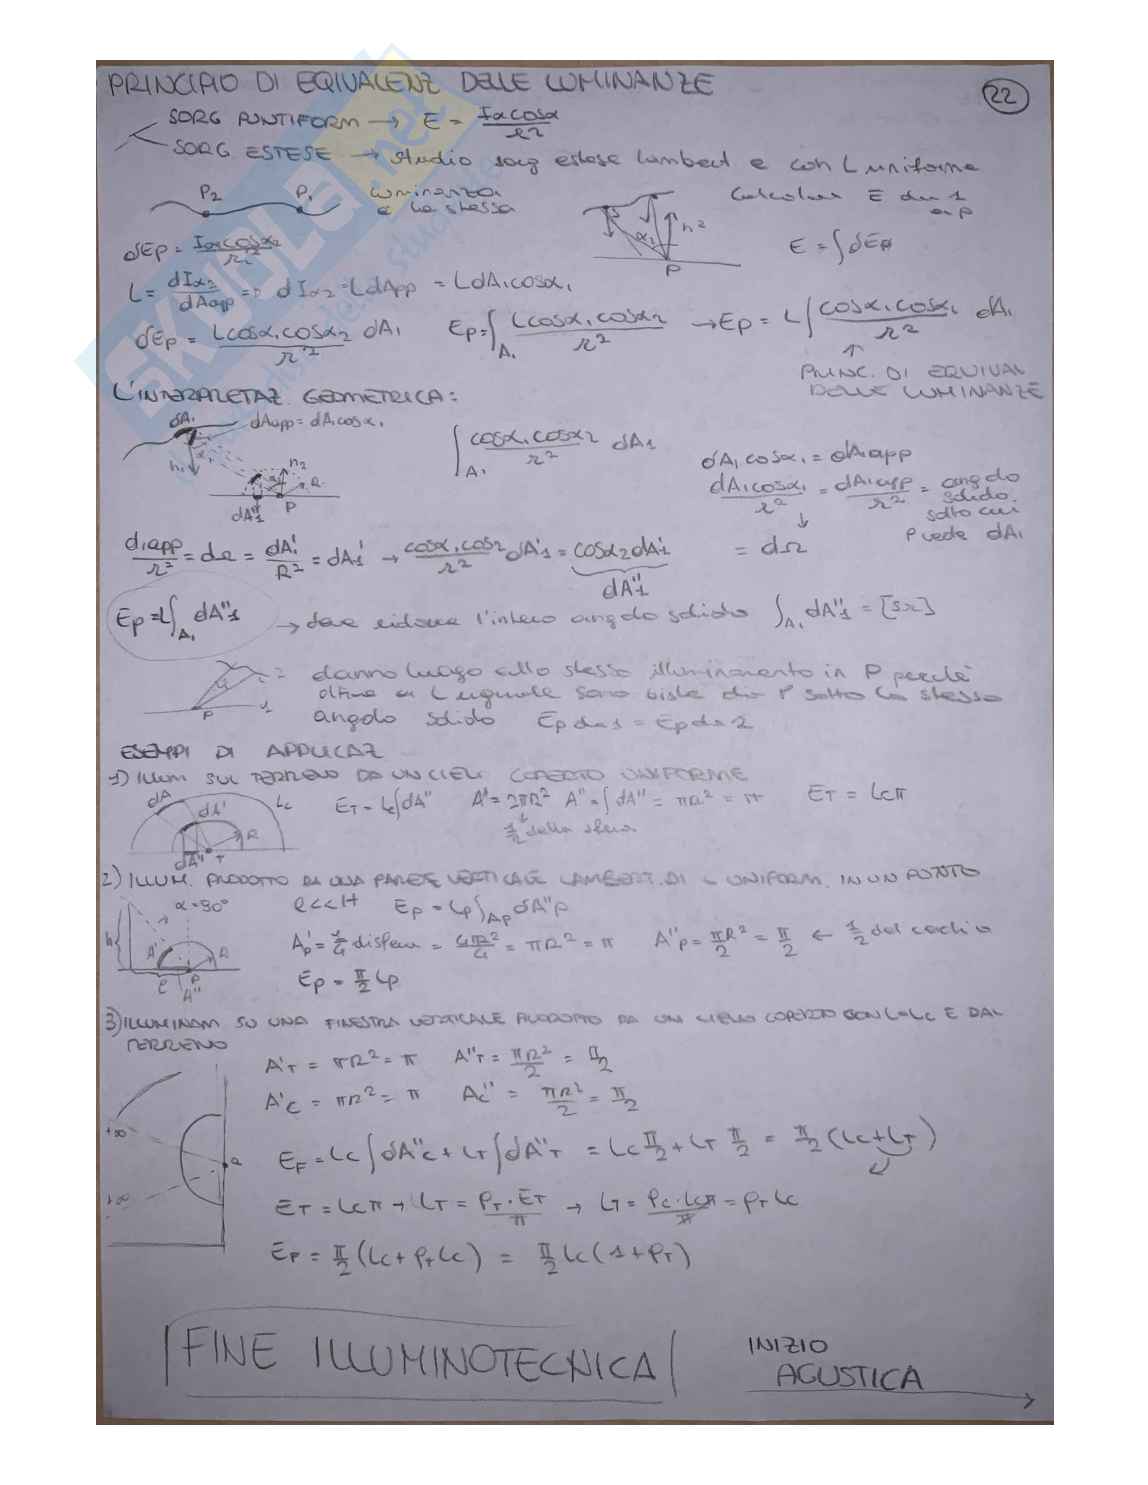 PRINCIPIO DI EQIVALENZ DELLE LUMINANZE
22
SORG PUNTIFORM → E = Iα cosα / r²
SORG ESTESE → studio sorg estese lambert e con L uniforme
P2 P1 luminanza è la stessa
Calcolare E da 1 a P
α2 n2 P
E = ∫dEp
dEp = Iα cosα2 / r²
L = dIα2 / dAapp => dIα2 = L dApp = L dA1 cosα1
dEp = L cosα1 cosα2 / r² dA1 Ep = ∫A1 L cosα1 cosα2 / r² → Ep = L ∫ cosα1 cosα1 / r² dA1
↑
PRINC. DI EQUIVAL
DELLE LUMINANZE
L'INTERPRETAZ. GEOMETRICA:
dA1 dAapp = dA1 cosα1
n1 α1 n2 R P dA''1
∫A1 cosα1 cosα2 / r² dA1
dA1 cosα1 = dA1app
dA1 cosα1 / r² = dA1app / r² = angolo solido sotto cui P vede dA1
↓
= dΩ
d1app / r² = dΩ = dA'1 / R² = dA1' → cosα1 cos2 / r² dA'1 = cosα2 dA'1
dA''1
Ep = L∫A1 dA''1 → deve ridare l'intero angolo solido ∫A1 dA''1 = [sr]
2 1 P
danno luogo allo stesso illuminamento in P perchè
oltre a L uguale sono viste da P sotto lo stesso
angolo solido Ep da 1 = Ep da 2
ESEMPI DI APPLICAZ
1) ILLUM SUL TERRENO DA UN CIELI COPERTO UNIFORME
dA dA' Lc R dA'' T
ET = Lc∫dA'' A' = 2πR² A'' = ∫dA'' = πR² = π ET = Lcπ
1/2 della sfera
2) ILLUM. PRODOTTO DA UNA PARETE VERTICALE LAMBERT. DI L UNIFORM. IN UN PUNTO
α = 90° l<<H Ep = Lp∫Ap dA''p
h A' R l P A''
A'p = 1/4 di sfera = 4πR²/4 = πR² = π A''p = πR²/2 = π/2 ← 1/2 del cerchio
Ep = π/2 Lp
3) ILLUMINAM SU UNA FINESTRA VERTICALE PRODOTTO DA UN CIELO COPERTO CON L=Lc E DAL
TERRENO
A'T = πR² = π A''T = πR²/2 = π/2
A'C = πR² = π AC'' = πR²/2 = π/2
+∞
EF = Lc∫dA''C + LT∫dA''T = Lc π/2 + LT π/2 = π/2 (Lc + LT)
ET = Lcπ → LT = ρT·ET / π → LT = ρc·Lcπ / π = ρT Lc
Ep = π/2 (Lc + ρT Lc) = π/2 Lc (1 + ρT)
FINE ILLUMINOTECNICA
INIZIO
AGUSTICA